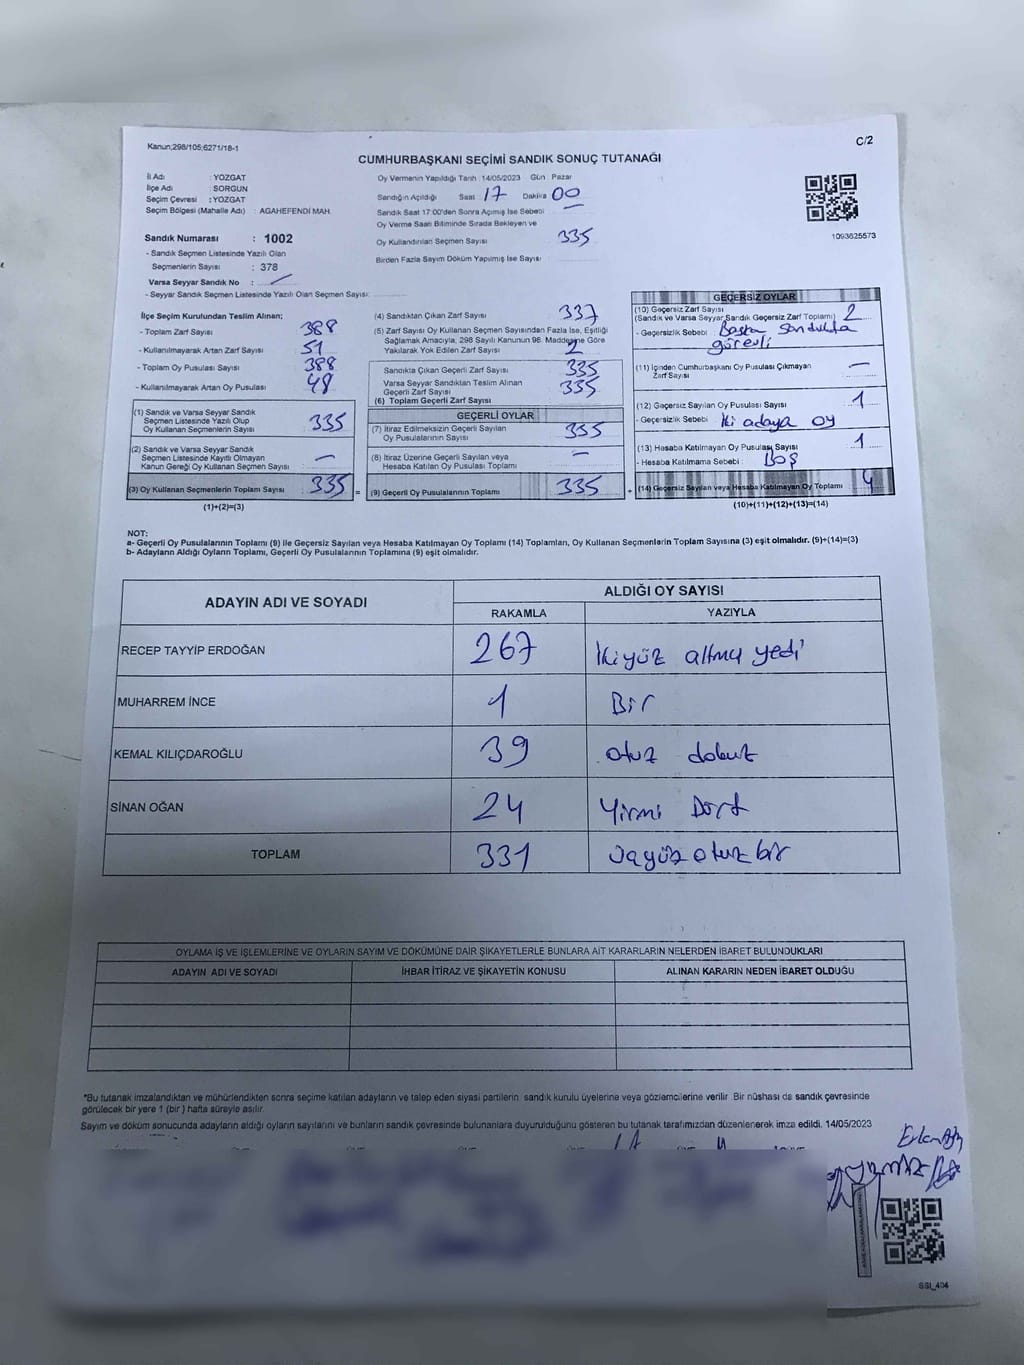 Kanun;298/105;6271/18-1
C/2
CUMHURBAŞKANI SEÇİMİ SANDIK SONUÇ TUTANAĞI
İl Adı : YOZGAT
İlçe Adı : SORGUN
Seçim Çevresi : YOZGAT
Seçim Bölgesi (Mahalle Adı) : AGAHEFENDİ MAH.
Sandık Numarası : 1002
- Sandık Seçmen Listesinde Yazılı Olan
Seçmenlerin Sayısı : 378
Varsa Seyyar Sandık No :
- Seyyar Sandık Seçmen Listesinde Yazılı Olan Seçmen Sayısı:
Oy Vermenin Yapıldığı Tarih :14/05/2023 Gün : Pazar
Sandığın Açıldığı Saat : 17 Dakika 00
Sandık Saat 17:00'den Sonra Açımış İse Sebebi
Oy Verme Saati Bitiminde Sırada Bekleyen ve
Oy Kullandırılan Seçmen Sayısı 335
Birden Fazla Sayım Döküm Yapılmış İse Sayısı
1093625573
İlçe Seçim Kurulundan Teslim Alınan;
- Toplam Zarf Sayısı : 388
- Kullanılmayarak Artan Zarf Sayısı : 51
- Toplam Oy Pusulası Sayısı : 388
- Kullanılmayarak Artan Oy Pusulası : 48
(1) Sandık ve Varsa Seyyar Sandık
Seçmen Listesinde Yazılı Olup
Oy Kullanan Seçmenlerin Sayısı : 335
(2) Sandık ve Varsa Seyyar Sandık
Seçmen Listesinde Kayıtlı Olmayan
Kanun Gereği Oy Kullanan Seçmen Sayısı : –
(3) Oy Kullanan Seçmenlerin Toplam Sayısı : 335
(1)+(2)=(3)
=
(4) Sandıktan Çıkan Zarf Sayısı : 337
(5) Zarf Sayısı Oy Kullanan Seçmen Sayısından Fazla İse, Eşitliği
Sağlamak Amacıyla, 298 Sayılı Kanunun 98. Maddesine Göre
Yakılarak Yok Edilen Zarf Sayısı : 2
Sandıkta Çıkan Geçerli Zarf Sayısı : 335
Varsa Seyyar Sandıktan Teslim Alınan
Geçerli Zarf Sayısı : 335
(6) Toplam Geçerli Zarf Sayısı
GEÇERLİ OYLAR
(7) İtiraz Edilmeksizin Geçerli Sayılan
Oy Pusulalarının Sayısı : 335
(8) İtiraz Üzerine Geçerli Sayılan veya
Hesaba Katılan Oy Pusulası Toplamı : –
(9) Geçerli Oy Pusulalarının Toplamı : 335
+
GEÇERSİZ OYLAR
(10) Geçersiz Zarf Sayısı
(Sandık ve Varsa Seyyar Sandık Geçersiz Zarf Toplamı) : 2
- Geçersizlik Sebebi : Başka sandıkta
görevli
(11) İçinden Cumhurbaşkanı Oy Pusulası Çıkmayan
Zarf Sayısı : –
(12) Geçersiz Sayılan Oy Pusulası Sayısı : 1
- Geçersizlik Sebebi : İki adaya oy
(13) Hesaba Katılmayan Oy Pusulası Sayısı : 1
- Hesaba Katılmama Sebebi : BOŞ
(14) Geçersiz Sayılan veya Hesaba Katılmayan Oy Toplamı : 4
(10)+(11)+(12)+(13)=(14)
NOT:
a- Geçerli Oy Pusulalarının Toplamı (9) ile Geçersiz Sayılan veya Hesaba Katılmayan Oy Toplamı (14) Toplamları, Oy Kullanan Seçmenlerin Toplam Sayısına (3) eşit olmalıdır. (9)+(14)=(3)
b- Adayların Aldığı Oyların Toplamı, Geçerli Oy Pusulalarının Toplamına (9) eşit olmalıdır.
ADAYIN ADI VE SOYADI
ALDIĞI OY SAYISI
RAKAMLA YAZIYLA
RECEP TAYYİP ERDOĞAN 267 İkiyüz altmış yedi
MUHARREM İNCE 1 Bir
KEMAL KILIÇDAROĞLU 39 otuz dokuz
SİNAN OĞAN 24 Yirmi Dört
TOPLAM 331 üçyüz otuz bir
OYLAMA İŞ VE İŞLEMLERİNE VE OYLARIN SAYIM VE DÖKÜMÜNE DAİR ŞİKAYETLERLE BUNLARA AİT KARARLARIN NELERDEN İBARET BULUNDUKLARI
ADAYIN ADI VE SOYADI İHBAR İTİRAZ VE ŞİKAYETİN KONUSU ALINAN KARARIN NEDEN İBARET OLDUĞU
*Bu tutanak imzalandıktan ve mühürlendikten sonra seçime katılan adayların ve talep eden siyasi partilerin sandık kurulu üyelerine veya gözlemcilerine verilir. Bir nüshası da sandık çevresinde
görülecek bir yere 1 (bir) hafta süreyle asılır.
Sayım ve döküm sonucunda adayların aldığı oyların sayılarını ve bunların sandık çevresinde bulunanlara duyurulduğunu gösteren bu tutanak tarafımızdan düzenlenerek imza edildi. 14/05/2023
SSI_404